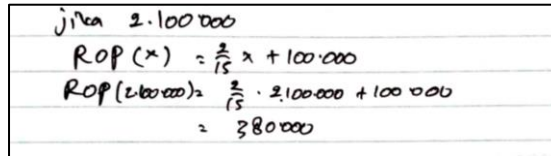 jika 2.100.000
ROP (x) = 2/15 x + 100.000
ROP (2.100.000) = 2/15 . 2.100.000 + 100 000
= 380000